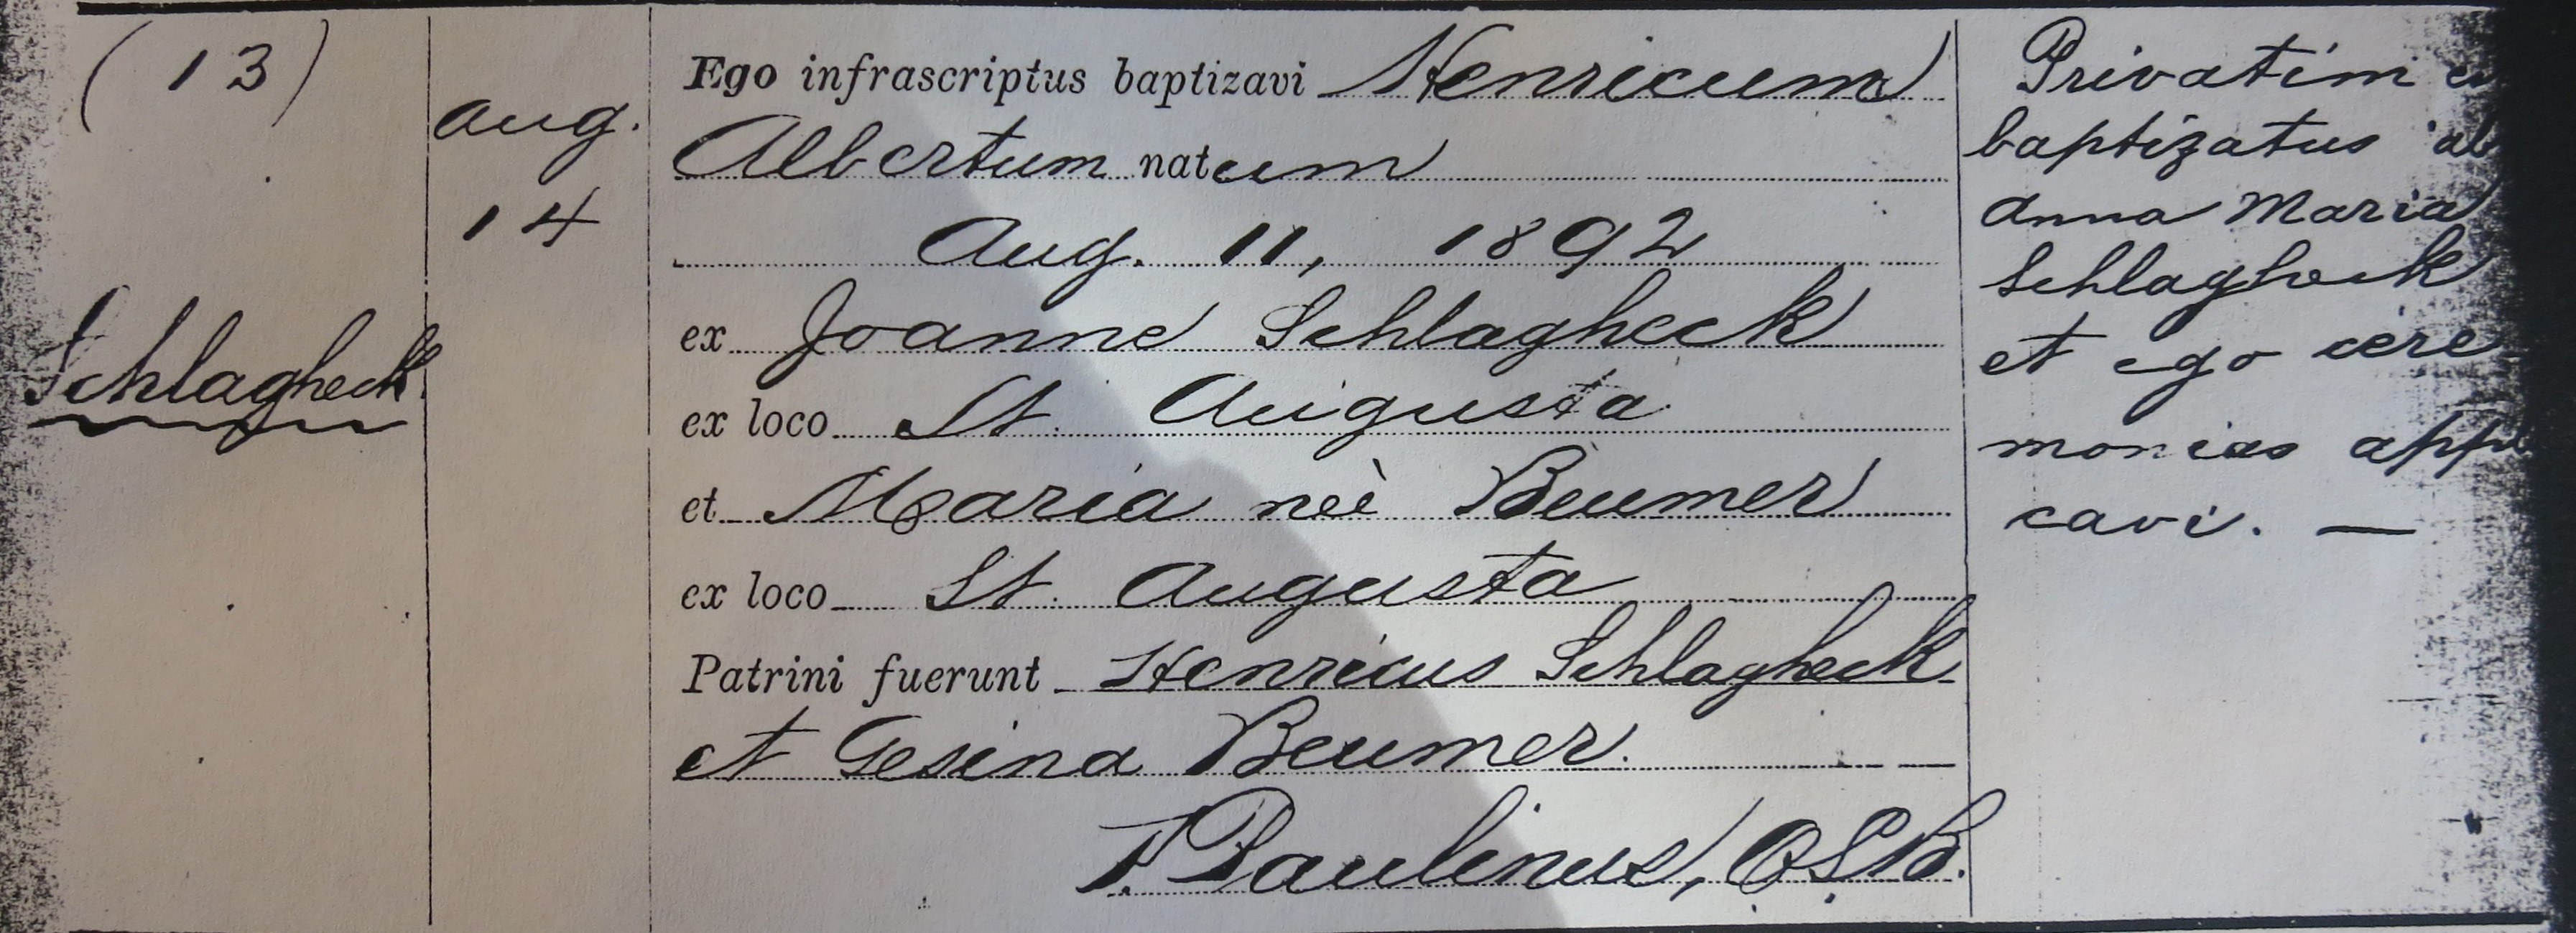 (13)
Aug.
14
Schlagheck
Ego infrascriptus baptizavi Henricum
Albertum natum
Aug. 11, 1892
ex Joanne Schlagheck
ex loco St. Augusta
et Maria neè Beumer
ex loco St. Augusta
Patrini fuerunt Henricus Schlagheck
et Gesina Beumer.
F. Paulinus, O.S.B.
Privatim
baptizatus ab
Anna Maria
Schlagheck
et ego cere
monias appli
cavi. —